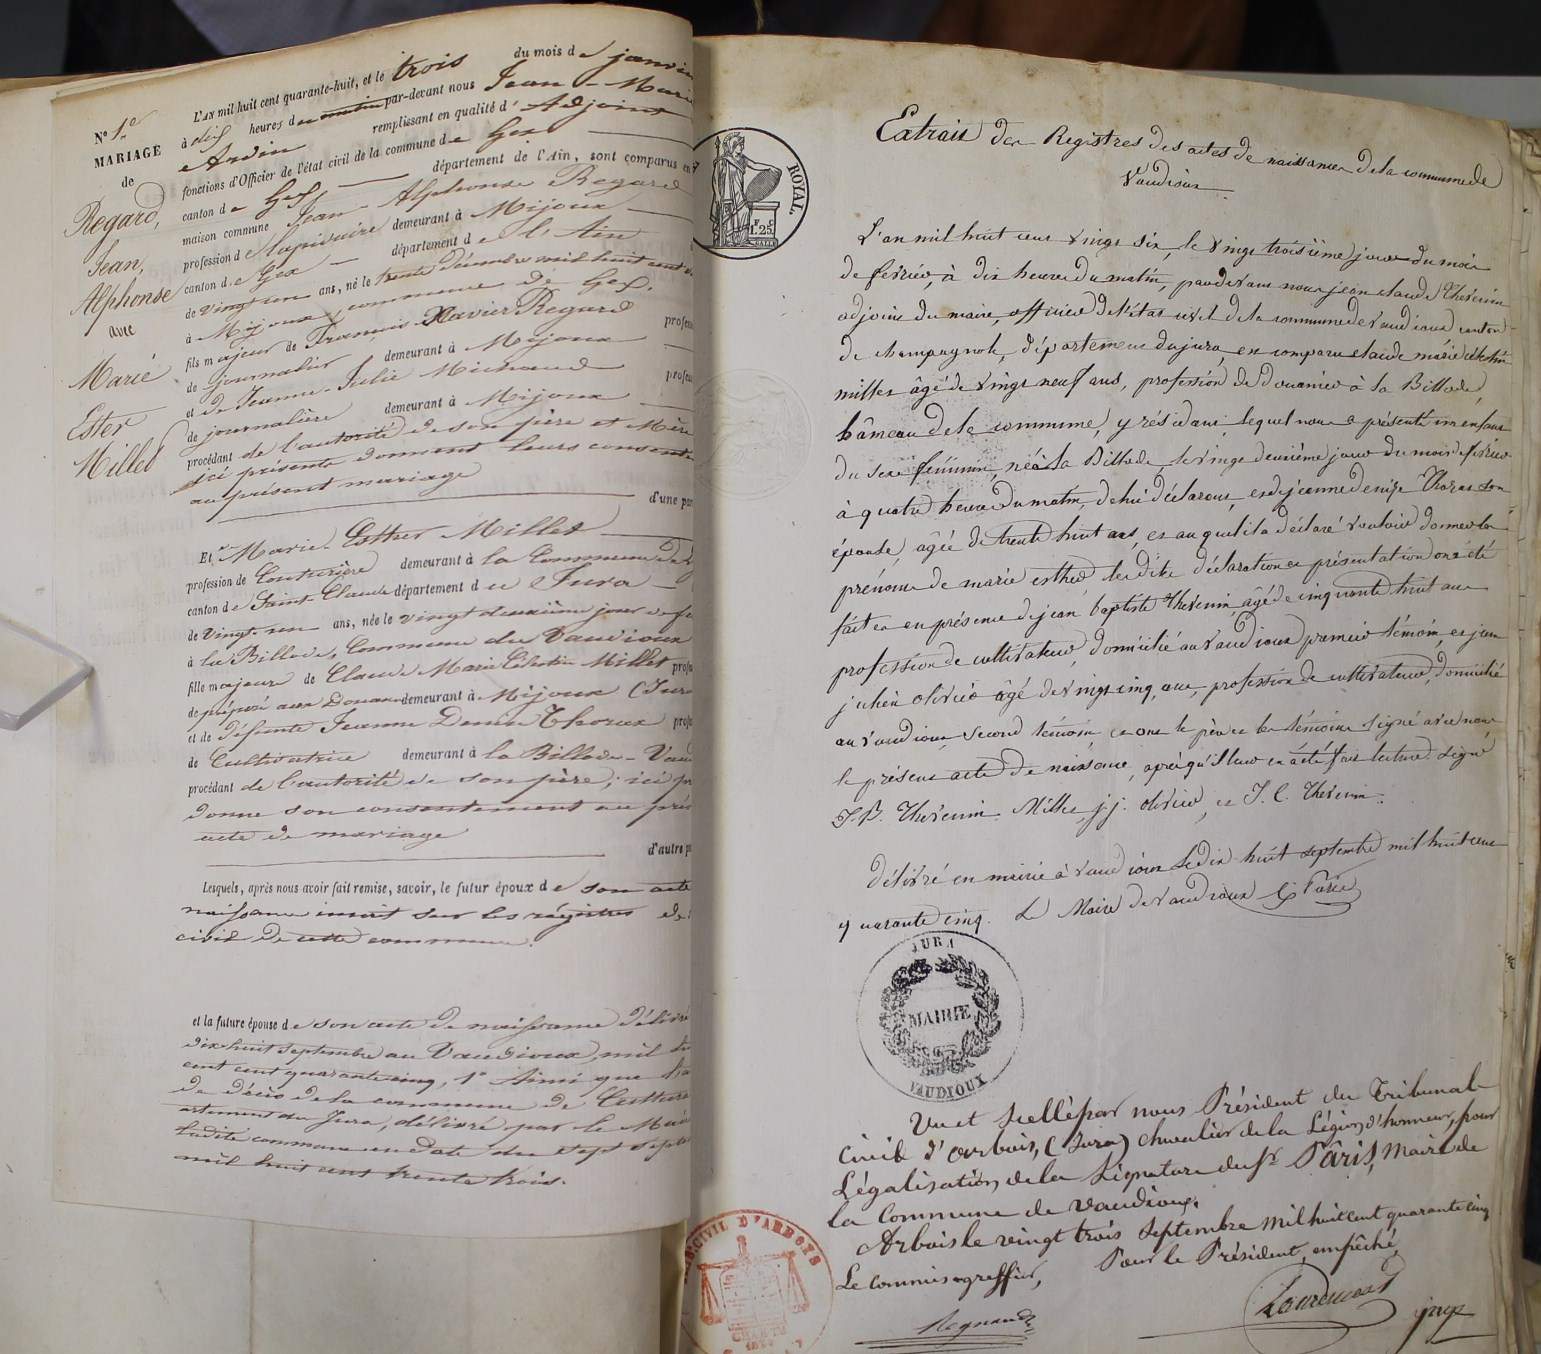 N° 1.er
MARIAGE
de
Regard,
Jean,
Alphonse
avec
Marie
Ester
Millet
L'AN mil huit cent quarante-huit, et le trois du mois de janvier
à dix heures du matin par-devant nous Jean-Marie
Andin remplissant en qualité d'Adjoint
fonctions d'Officier de l'état civil de la commune de Gex
canton de Gex département de l'Ain, sont comparus en
maison commune Jean-Alphonse Regard
profession de lapidaire demeurant à Mijoux
canton de Gex département de l'Ain
de vingt un ans, né le trente décembre mil huit cent
à Mijoux, commune de Gex.
fils majeur de François Xavier Regard profess
de journalier demeurant à Mijoux
et de Jeanne-Julie Michaud profess
de journalière demeurant à Mijoux
procédant de l'autorité de son père et Mère
ici présents donnent leurs consente
au présent mariage
d'une par
Et Marie-Esther Millet
profession de Couturière demeurant à la Commune de
canton de Saint-Claude département du Jura
de vingt-un ans, née le vingt deuxième jour de fe
à la Billode, Commune du Vaudioux
fille majeure de Claude Marie Célestin Millet profe
de préposé aux Douanes demeurant à Mijoux (Jura
et de défunte Jeanne Denise Thorax profe
de Cultivatrice demeurant à la Billode-Vaud
procédant de l'autorité de son père, ici pr
donne son consentement au prés
acte de mariage
d'autre p
Lesquels, après nous avoir fait remise, savoir, le futur époux de son acte
naissance inscrit sur les régistres de
civil de cette commune.
et la future épouse de son acte de naissance délivré
dix-huit septembre au Vaudioux, mil hu
cent cent quarante cinq, 1° Ainsi que l'a
de décès de la commune de
artement du Jura, délivré par le Mair
ladite commune en date du sept sept
mil huit cent trente trois.
ROYAL.
F. C.
1.25.
Extrait des Registres des actes de naissances de la commune de
Vaudioux
L'an mil huit cent vingt six, le vingt troisième jour du mois
de fevrier, à dix heures du matin, pardevant nous jean claude Thevenin
adjoint du maire, officier de l'état civil de la commune de vaudioux canton
de champagnole, département du jura, est comparu claude marie célestin
millet âgé de vingt neuf ans, profession de Douanier à la Billode,
hâmeau de la commune, y résidant, lequel nous a présenté un enfant
du sexe féminin, née à la Billode le vingt deuxième jour du mois de février
à quatre heures du matin, de lui déclarant, et de jeanne denise Thorax son
épouse, âgée de trente huit ans, et auquel il a déclaré vouloir donner les
prénoms de marie esther les dites déclaration et présentation ont été
faites en présence de jean baptiste Thevenin, âgé de cinquante huit ans
profession de cultivateur, domicilié au vaudioux premier témoin, et jean
julien olivier âgé de vingt cinq ans, profession de cultivateur, domicilié
au vaudioux second témoin et ont le père et les témoins signé avec nous
le présent acte de naissance, après qu'il leur en a été fait lecture. Signé
J. B. Thevenin Millet, j. j. olivier, et J. C. Thevenin.
délivré en mairie à vaudioux le dix huit septembre mil huit cent
quarante cinq. Le Maire de vaudioux Paris
JURA
MAIRIE
VAUDIOUX
Vu et Scellé par nous Président du Tribunal
civil d'Arbois, (Jura) chevalier de la Légion d'honneur, pour
Légalisation de la Signature du Sr. Pâris, Maire de
la Commune de Vaudioux.
Arbois le vingt trois Septembre mil huit cent quarante cinq
Le commis-greffier, Pour le Président, empêché,
Regnaud
juge
CIVIL D'ARBOIS
CHARTE